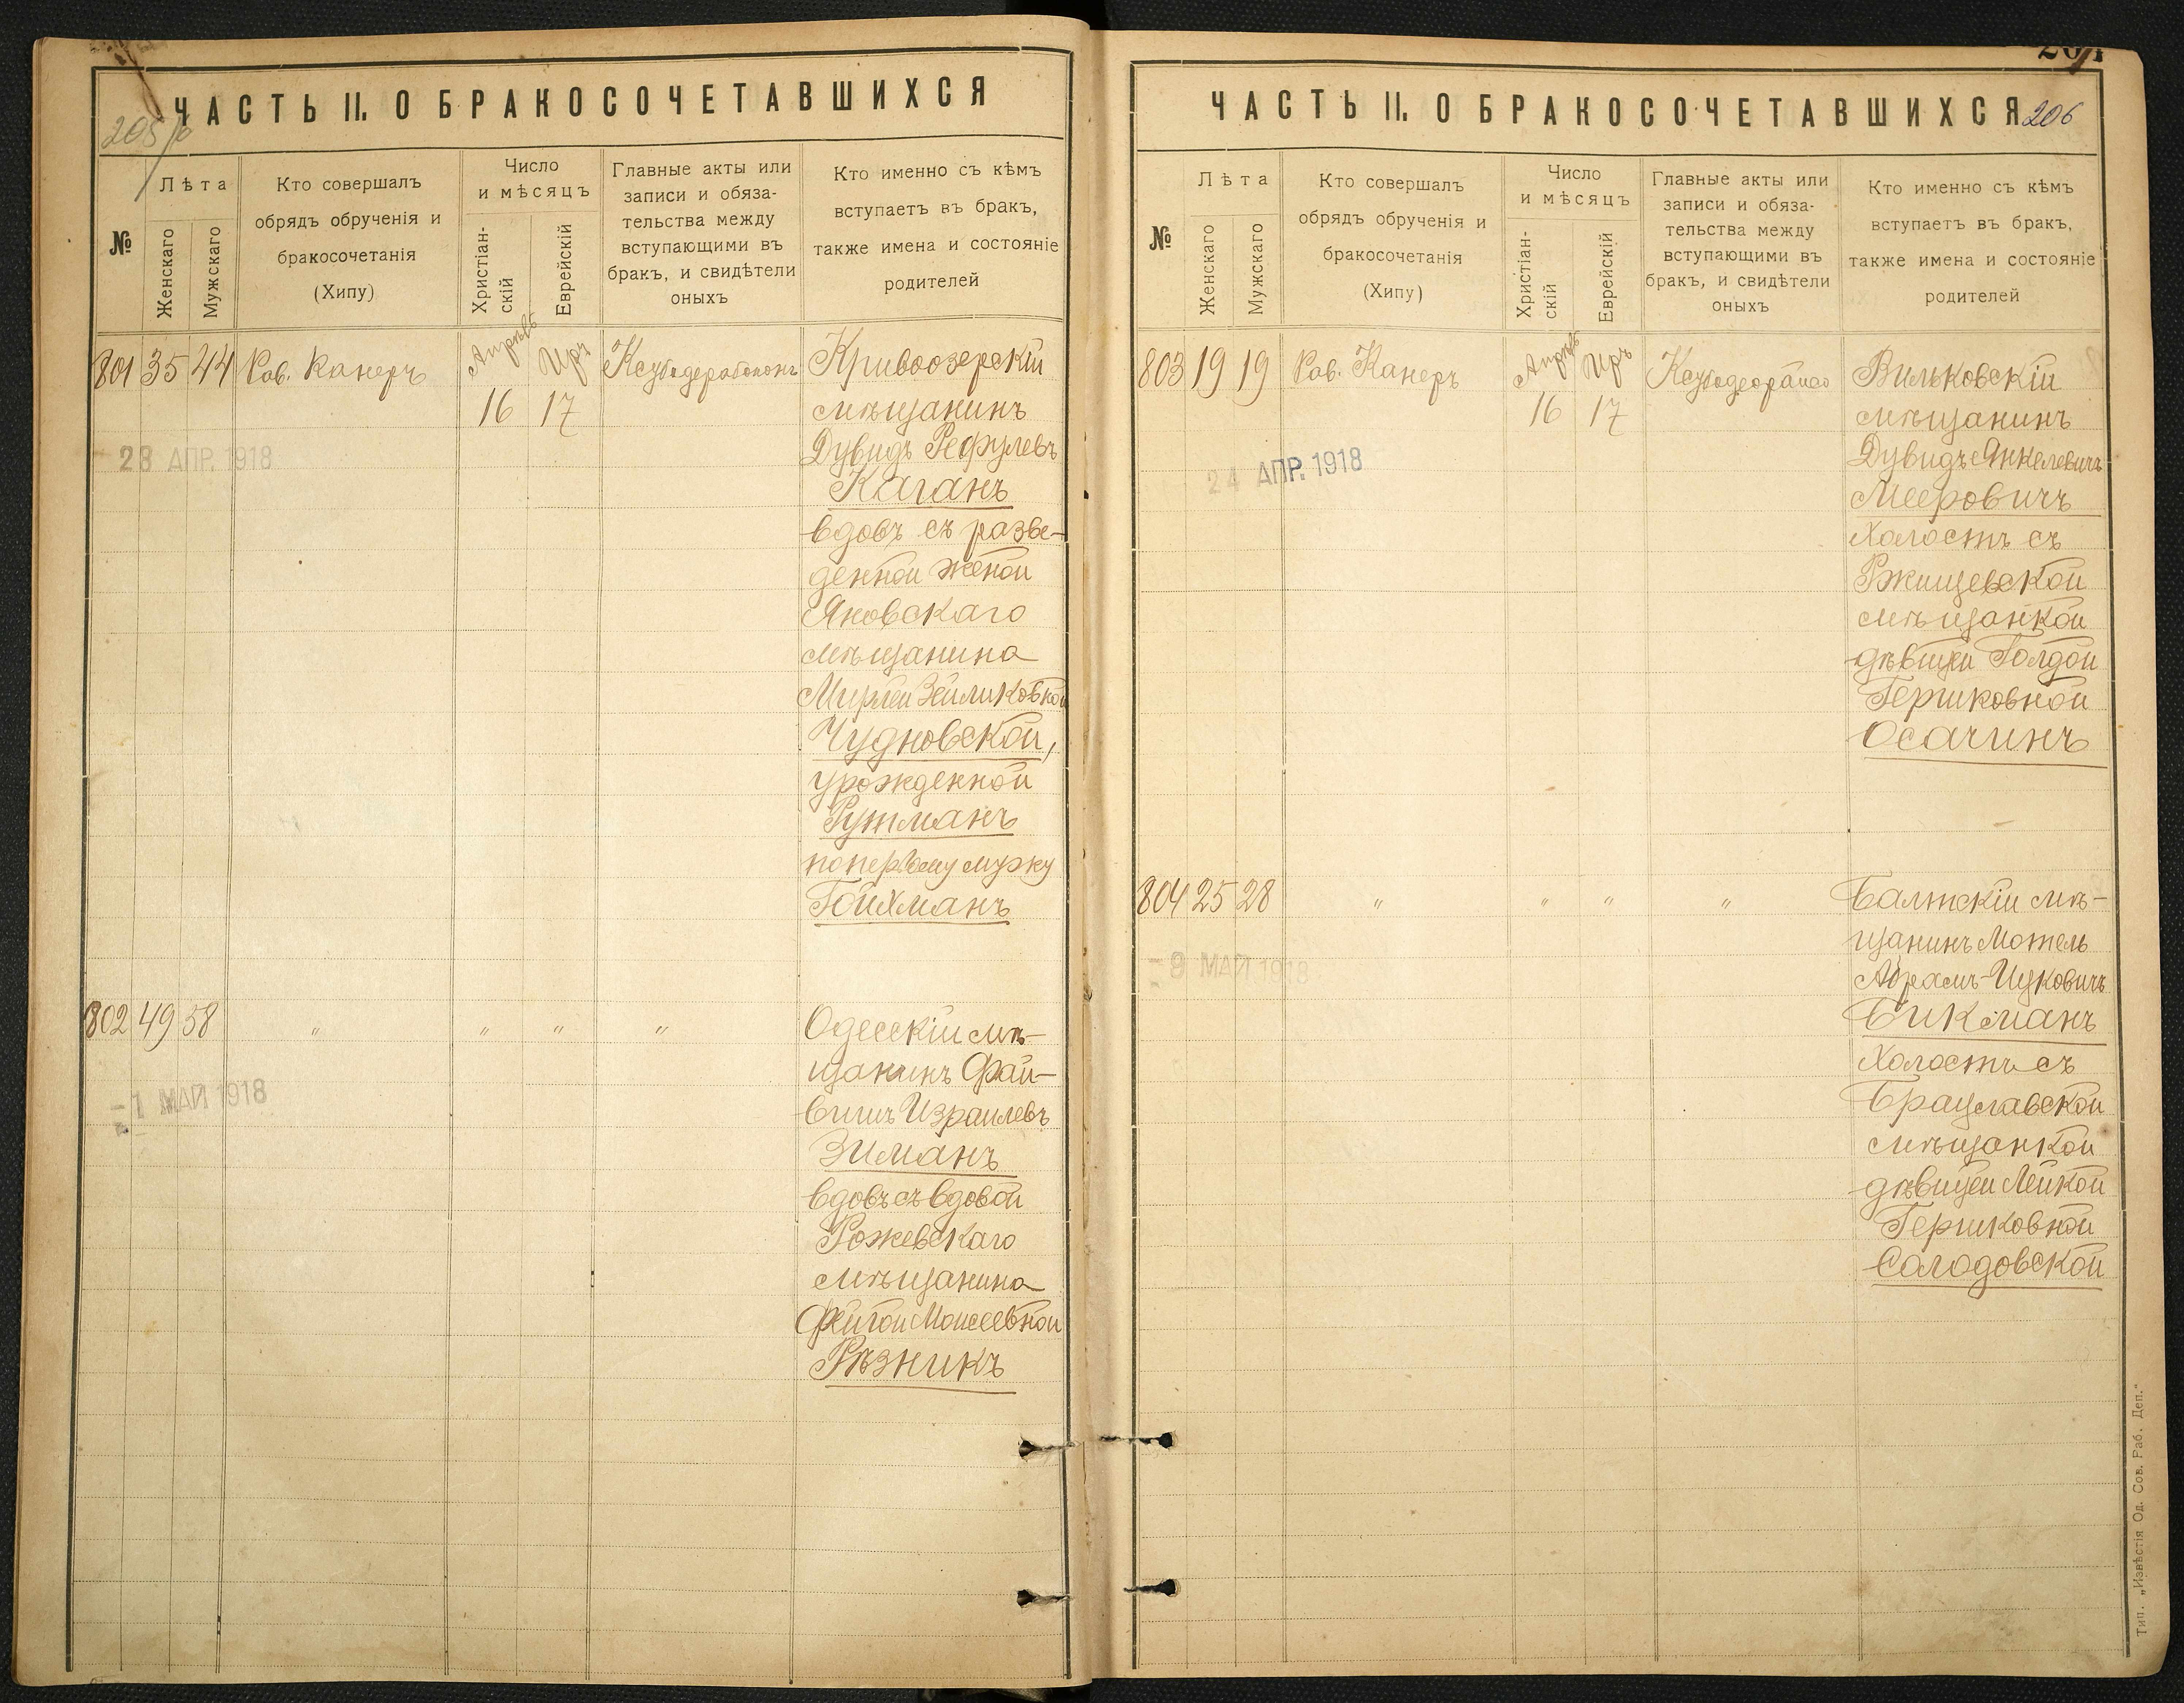 ЧАСТЬ II. О БРАКОСОЧЕТАВШИХСЯ
№
Лѣта
Женскаго
Мужскаго
Кто совершалъ
обрядъ обрученія и
бракосочетанія
(Хипу)
Число
и мѣсяцъ
Христіан-
скій
Еврейскій
Главные акты или
записи и обяза-
тельства между
вступающими въ
бракъ, и свидѣтели
оныхъ
Кто именно съ кѣмъ
вступаетъ въ бракъ,
также имена и состояніе
родителей
801 35 44 Рав. Канеръ
Апрѣль Иръ
16 17
28 АПР. 1918
Кривоозерскій
мѣщанинъ
Дувидъ Рефулевъ
Каганъ
вдовъ съ разве-
денной женой
Яновскаго
мѣщанина
Мирлей Зейликовной
Чудновской,
урожденной
Рутманъ
по первому мужу
Гойхманъ
802 49 58 " " " "
-1 МАЙ 1918
Одесскій мѣ-
щанинъ Фай-
вишъ Израилевъ
Зиманъ
вдовъ съ вдовой
Рожевскаго
мѣщанина
Фейгой Моисеевной
Рѣзникъ
ЧАСТЬ II. О БРАКОСОЧЕТАВШИХСЯ
206
№
Лѣта
Женскаго
Мужскаго
Кто совершалъ
обрядъ обрученія и
бракосочетанія
(Хипу)
Число
и мѣсяцъ
Христіан-
скій
Еврейскій
Главные акты или
записи и обяза-
тельства между
вступающими въ
бракъ, и свидѣтели
оныхъ
Кто именно съ кѣмъ
вступаетъ въ бракъ,
также имена и состояніе
родителей
803 19 19 Рав. Канеръ
Апрѣль Иръ
16 17
24 АПР. 1918
Вильковскій
мѣщанинъ
Дувидъ Янкелевичъ
Мееровичъ
холостъ съ
Ржищевской
мѣщанкой
дѣвицей Голдой
Гершковной
Осачинъ
804 25 28 " " " "
-9 МАЙ 1918
Балтскій мѣ-
щанинъ Мотель
Абрамъ-Ицковичъ
Бикманъ
холостъ съ
Брацлавской
мѣщанкой
дѣвицей Лейкой
Гершковной
Солодовской
Тип. „Извѣстія Од. Сов. Раб. Деп."